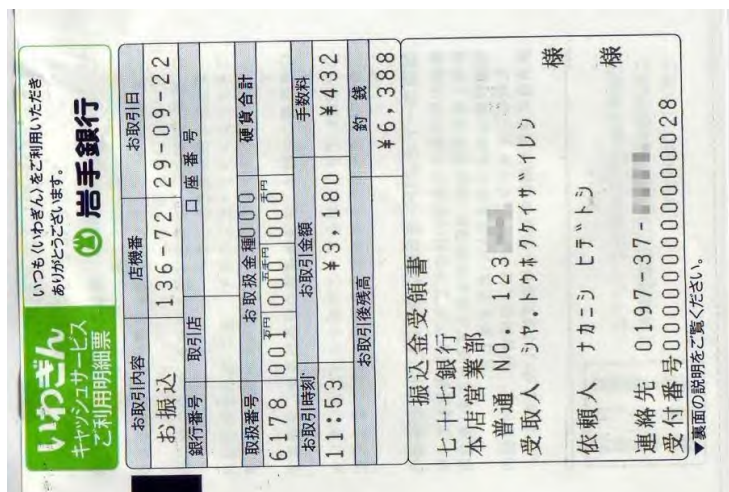 いわぎん
キャッシュサービス
ご利用明細票
いつも〈いわぎん〉をご利用いただき
ありがとうございます。
岩手銀行
お取引内容 店機番 お取引日
お振込 136-72 29-09-22
銀行番号 取引店 口座番号
取扱番号 お取扱金種000 硬貨合計
6178 001万円 000五千円 000千円
お取引時刻 お取引金額 手数料
11:53 ¥3,180 ¥432
お取引後残高 釣銭
¥6,388
振込金受領書
七十七銀行
本店営業部
普通 NO. 123
受取人 シヤ.トウホクケイザイレン 様
依頼人 ナカニシ ヒデトシ 様
連絡先 0197-37-
受付番号0000000000000028
▼裏面の説明をご覧ください。